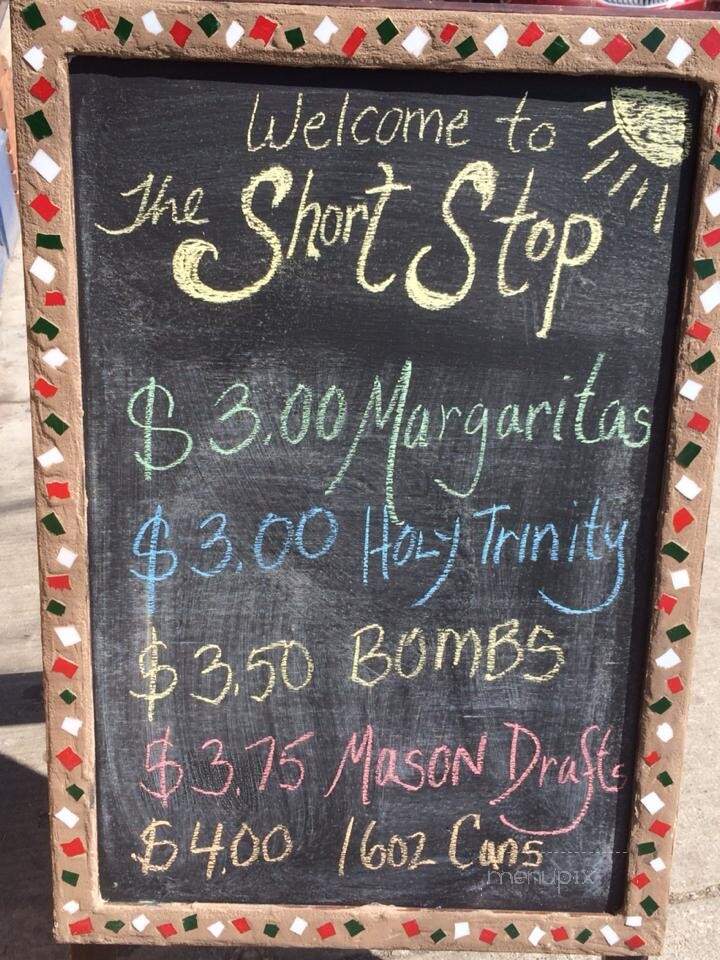 Welcome to
The Short Stop
$3.00 Margaritas
$3.00 Holy Trinity
$3.50 BOMBS
$3.75 MasON Drafts
$4.00 16oz Cans
menupix